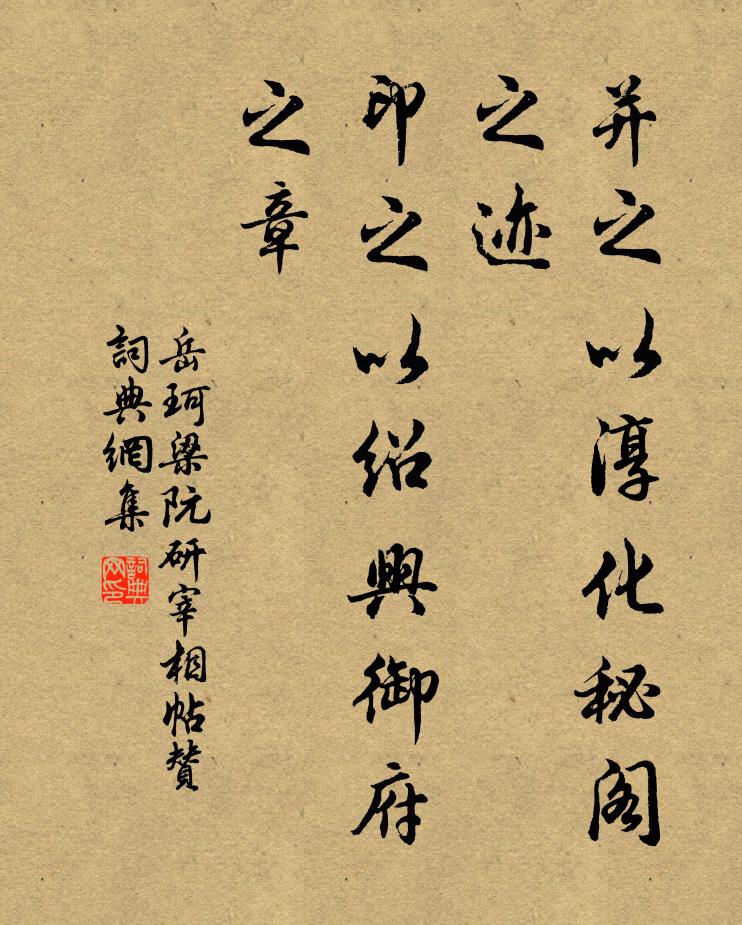 并之以淳化秘阁
之迹
印之以绍興御府
之章
岳珂梁阮研宰相帖赞
詞典網集
詞典网印